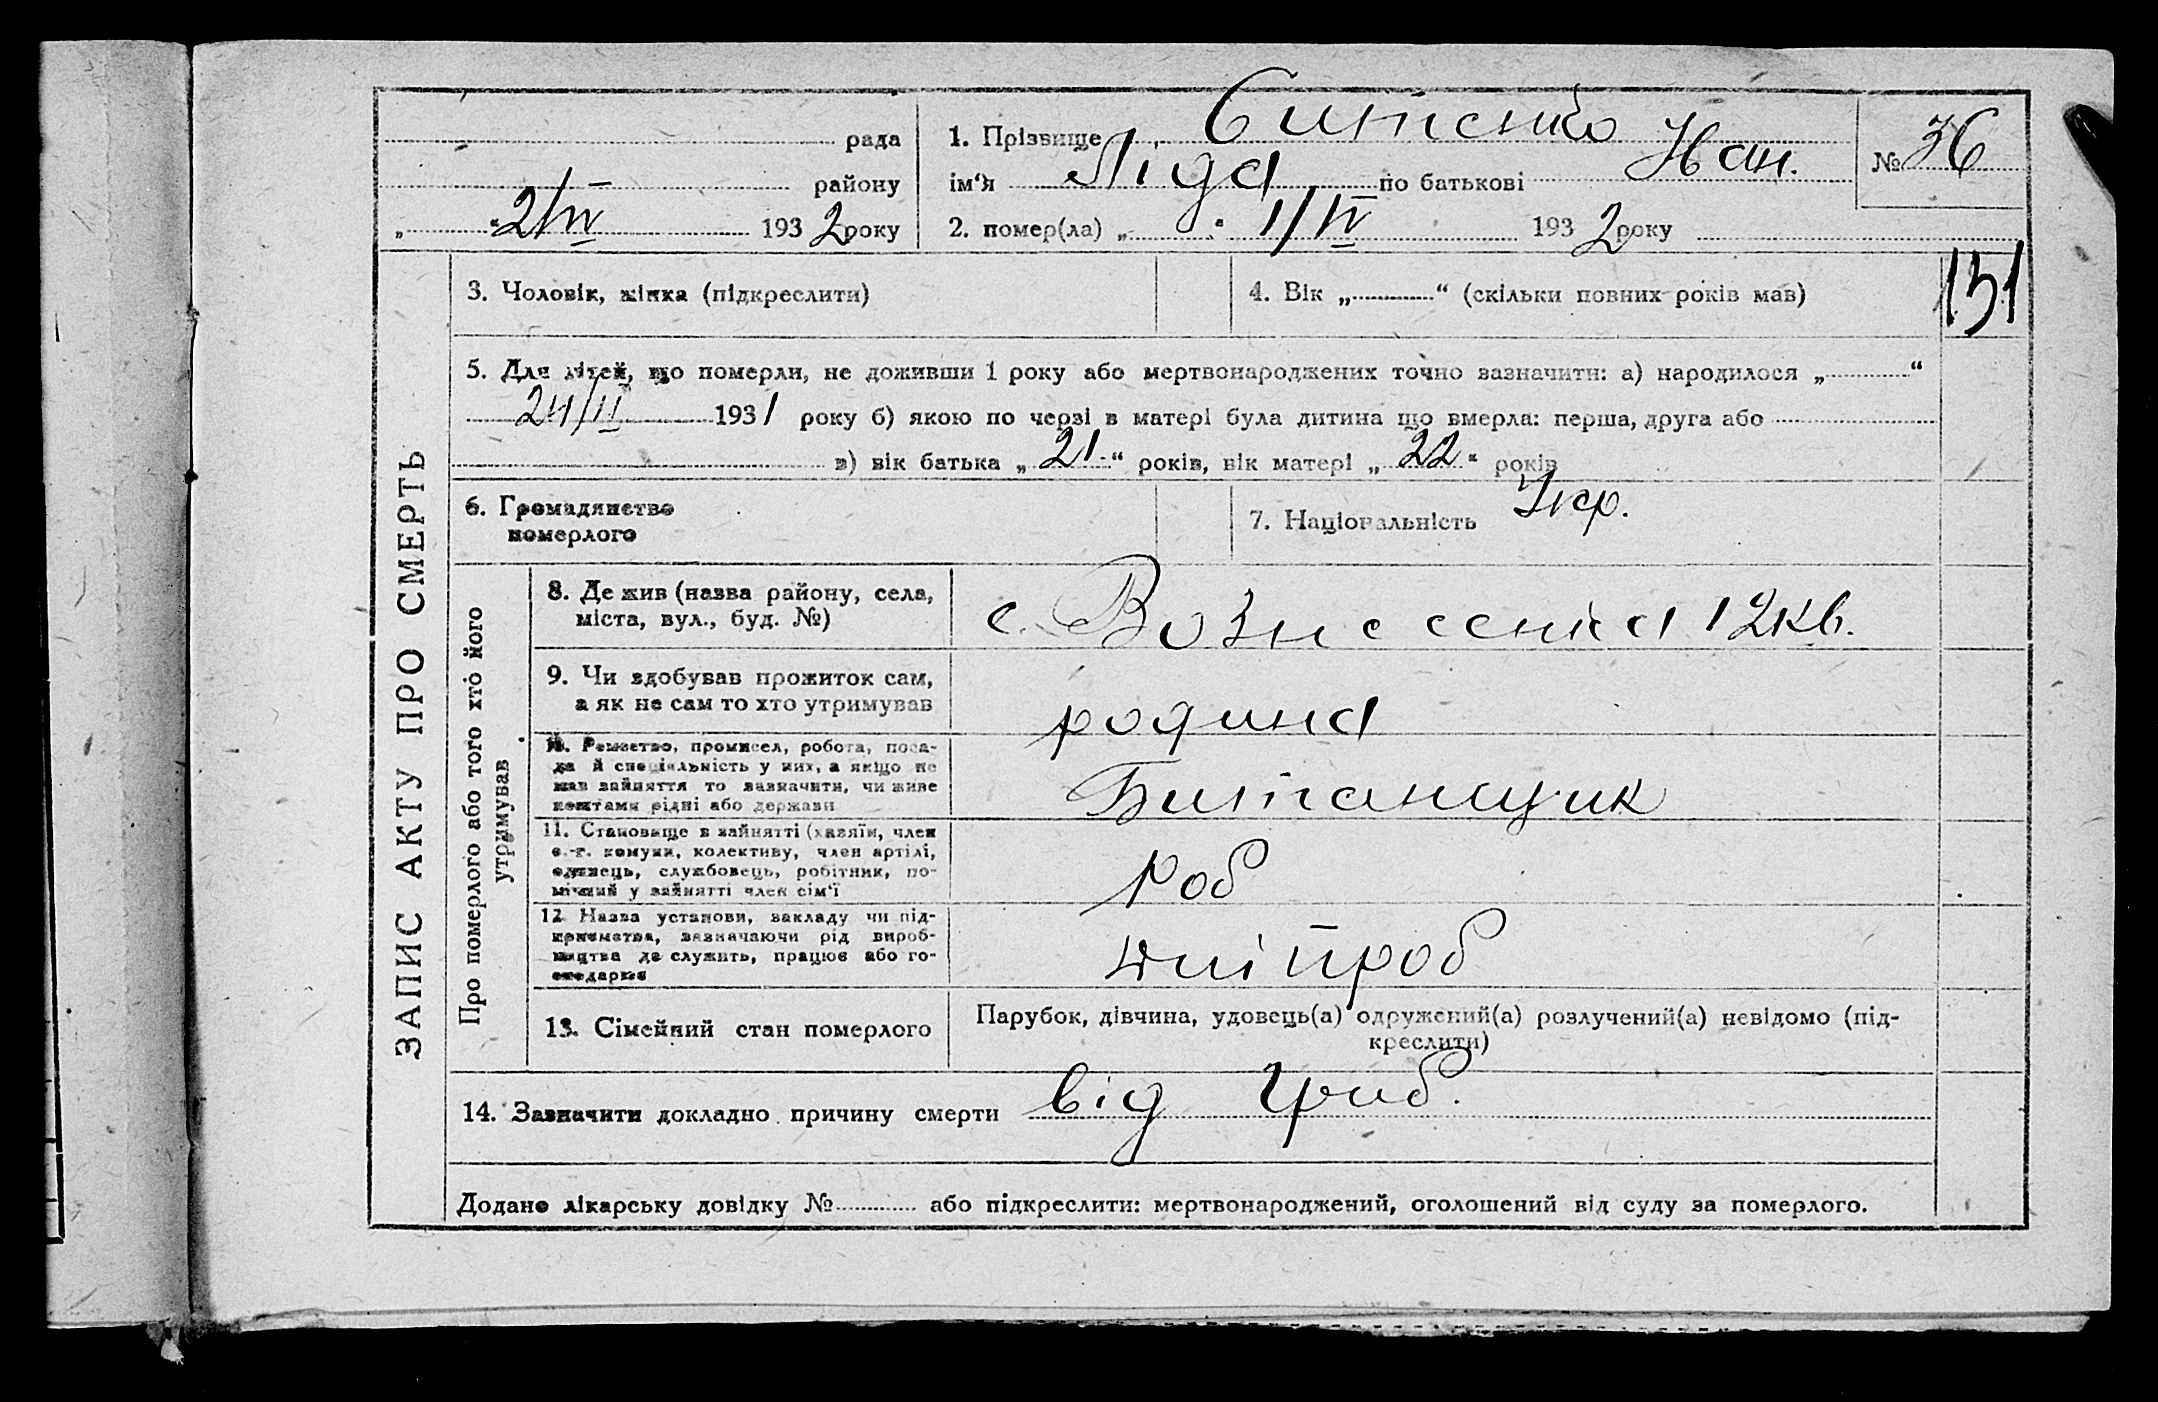 рада
району
„ “ 2/IV 1932 року
1. Прізвище Ситенко
ім‘я Ліда по батькові Ів ан.
2. помер(ла) „ “ 1/IV 1932 року
№ 36
131
ЗАПИС АКТУ ПРО СМЕРТЬ
3. Чоловік, жінка (підкреслити)
4. Вік „ “ (скільки повних років мав)
5. Для дітей, що померли, не доживши 1 року або мертвонароджених точно зазначити: а) народилося „ “
24/II 1931 року б) якою по черзі в матері була дитина що вмерла: перша, друга або
в) вік батька „21“ років, вік матері „22“ років
6. Громадянство
померлого
7. Національність Укр.
Про померлого або того хто його
утримував
8. Де жив (назва району, села,
міста, вул., буд. №)
с. Вознесенка 12кв.
9. Чи здобував прожиток сам,
а як не сам то хто утримував
родина
10. Ремество, промисел, робота, поса-
да й спеціяльність у них, а якщо не
мав зайняття то зазначити, чи живе
коштами рідні або держави
Битанщик
11. Становище в зайнятті (хазяїн, член
с.-г. комуни, колективу, член артілі,
одинець, службовець, робітник, по-
мічний у зайнятті член сім‘ї
роб
12 Назва установи, закладу чи під-
приємства, зазначаючи рід вироб-
ництва де служить, працює або го-
сподарює
Дніпроб
13. Сімейний стан померлого
Парубок, дівчина, удовець(а) одружений(а) розлучений(а) невідомо (під-
креслити)
14. Зазначити докладно причину смерти від гриб.
Додано лікарську довідку № або підкреслити: мертвонароджений, оголошений від суду за померлого.